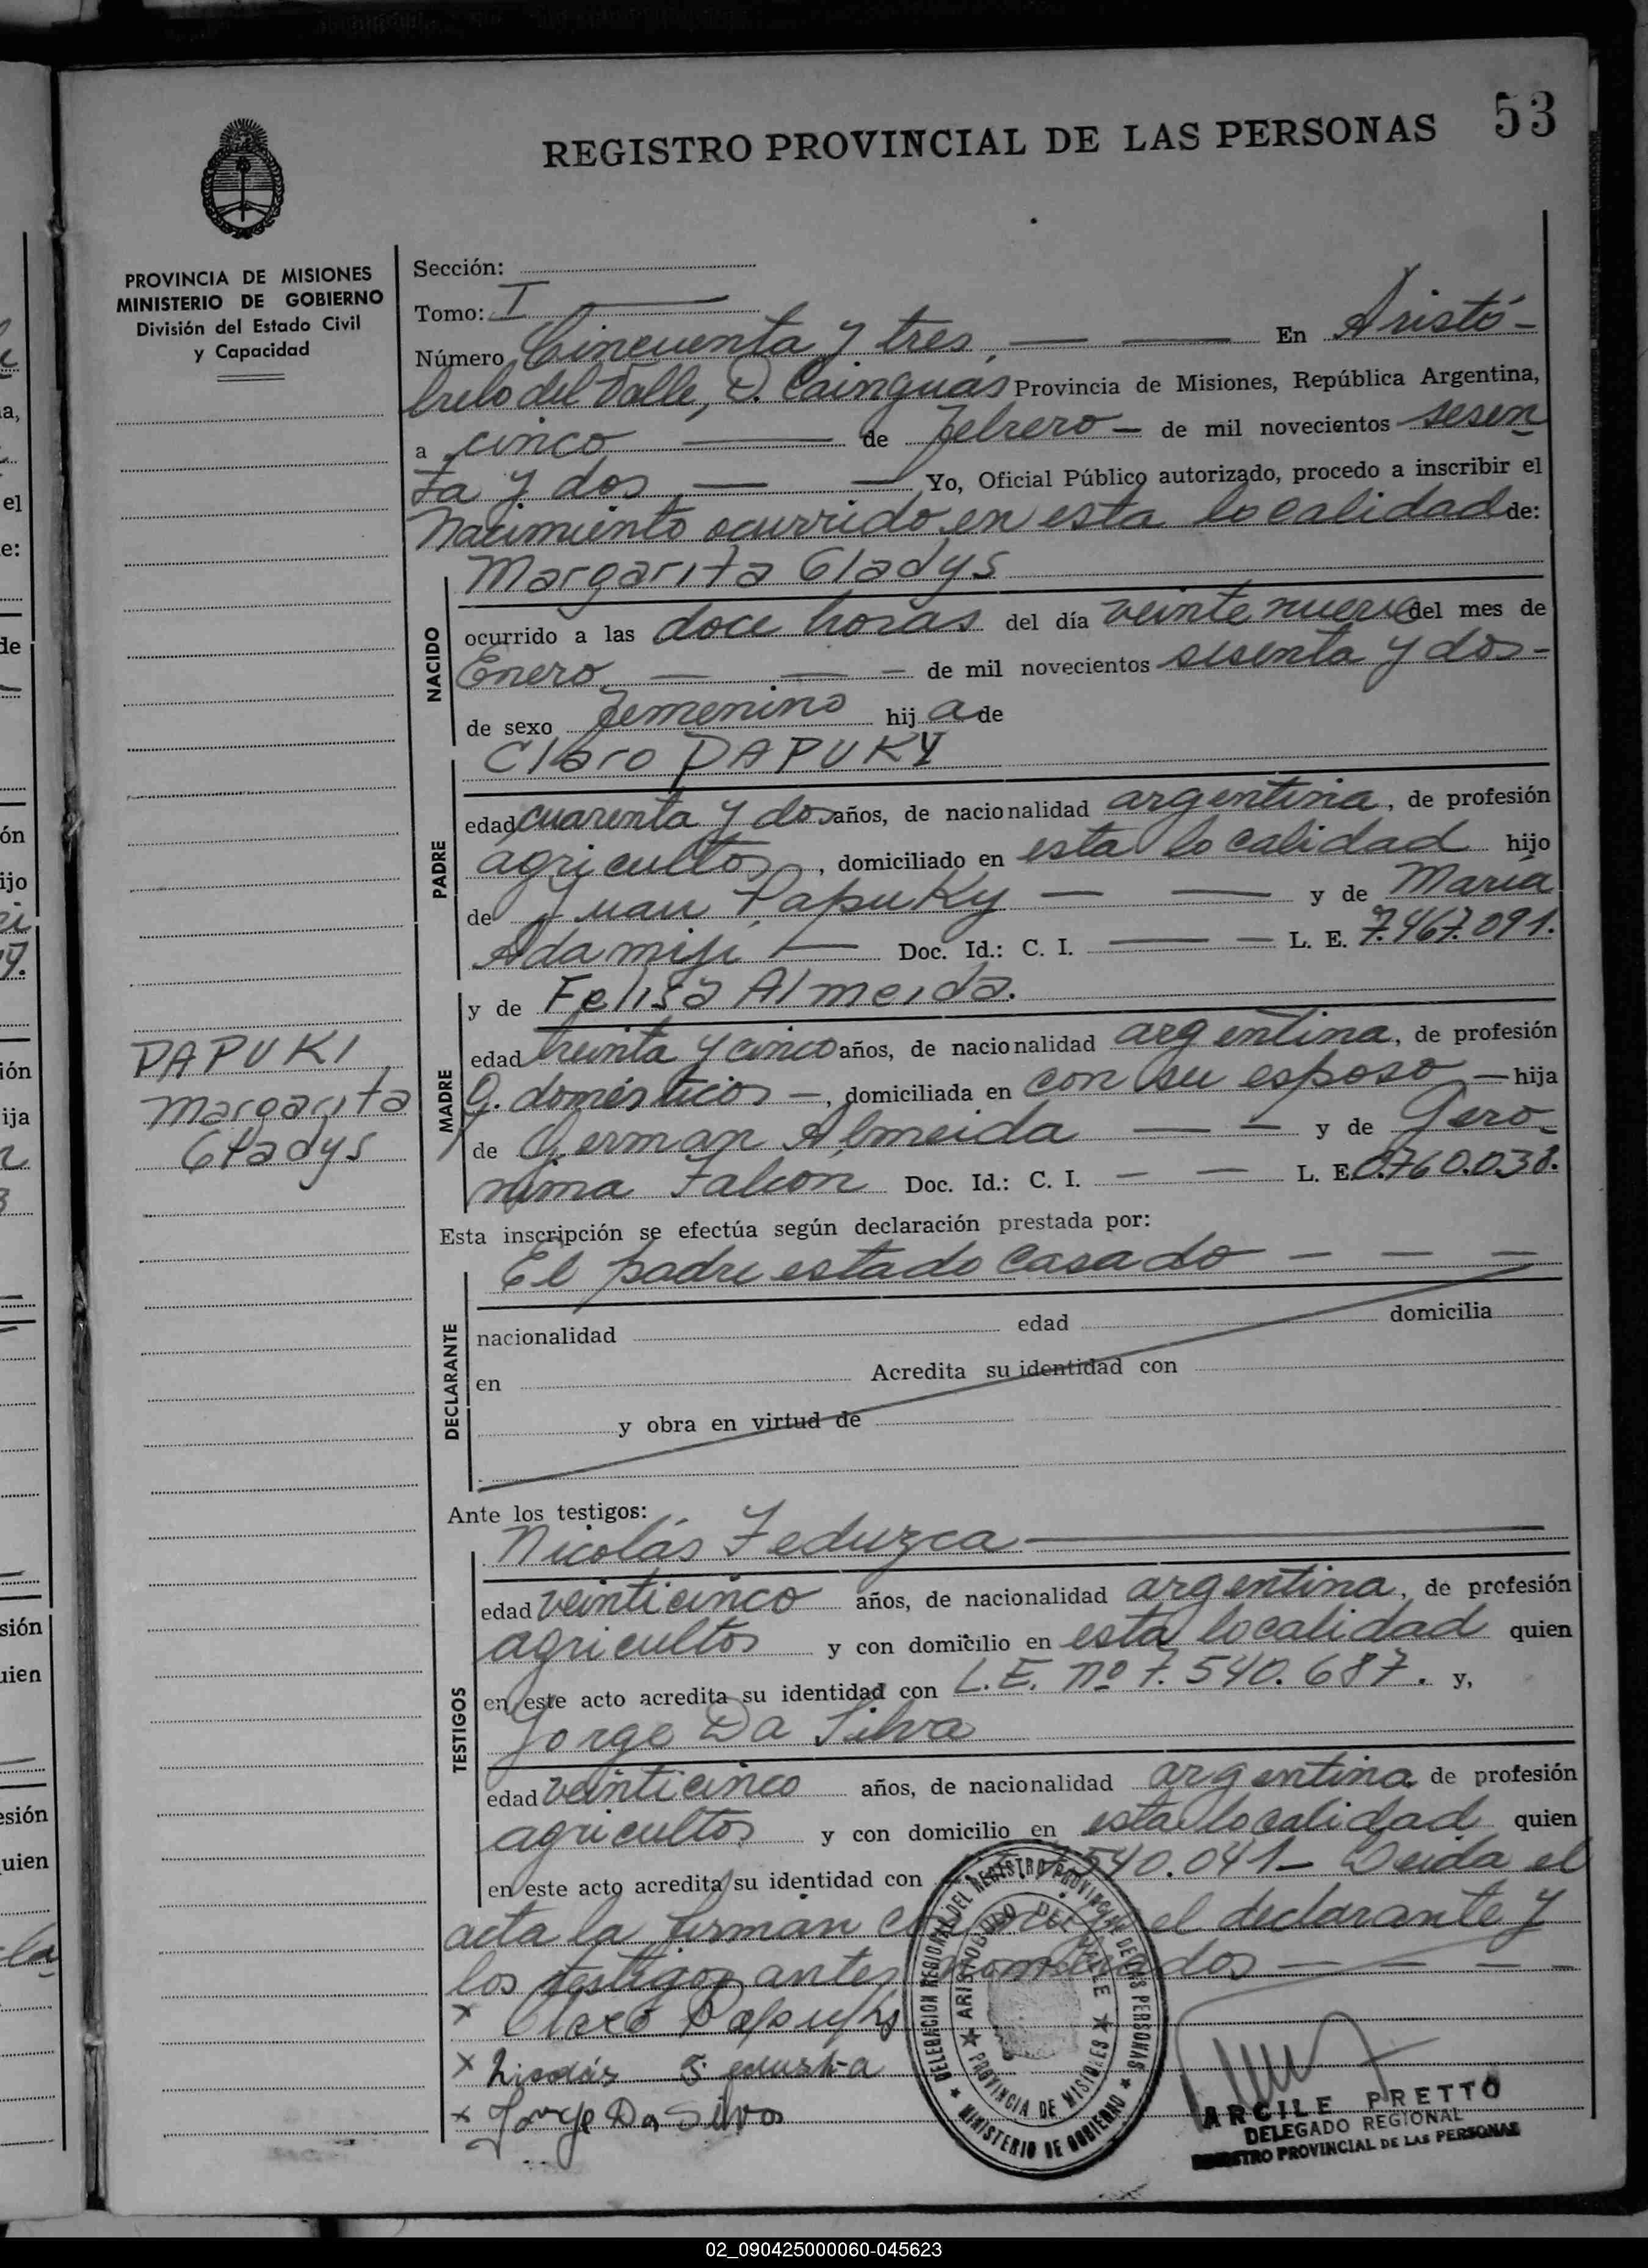 53
REGISTRO PROVINCIAL DE LAS PERSONAS
PROVINCIA DE MISIONES
MINISTERIO DE GOBIERNO
División del Estado Civil
y Capacidad
Sección:
Tomo: I
Número Cincuenta y tres, En Aristó-
bulo del Valle, D. Cainguás Provincia de Misiones, República Argentina,
a cinco de Febrero - de mil novecientos sesen
ta y dos Yo, Oficial Público autorizado, procedo a inscribir el
Nacimiento ocurrido en esta localidad de:
NACIDO
Margarita Gladys
ocurrido a las doce horas del día veinte nueve del mes de
Enero de mil novecientos sesenta y dos-
de sexo femenino hij a de
PADRE
Claro PAPUKY
edad cuarenta y dos años, de nacionalidad argentina, de profesión
agricultor, domiciliado en esta localidad hijo
de Juan Papuky y de María
Doc. Id.: C. I. L. E. 7.467.091.
MADRE
y de Felisa Almeida.
edad treinta y cinco años, de nacionalidad argentina, de profesión
Q. domésticos -, domiciliada en con su esposo - hija
de German Almeida y de Gero-
nima Falcón Doc. Id.: C. I. L. E. 0.760.038.
PAPUKI
Margarita
Gladys
Esta inscripción se efectúa según declaración prestada por:
DECLARANTE
El padre estado casado
nacionalidad edad domicilia
en Acredita su identidad con
y obra en virtud de
Ante los testigos:
TESTIGOS
Nicolás Feduzca
edad veinticinco años, de nacionalidad argentina, de profesión
agricultor y con domicilio en esta localidad quien
en este acto acredita su identidad con L.E. Nº 7.540.687. y,
Jorge Da Silva
edad veinticinco años, de nacionalidad argentina de profesión
agricultor y con domicilio en esta localidad quien
en este acto acredita su identidad con 540.041- Leida el
acta la firman conmigo el declarante y
los testigos antes nombrados
x Claro Papuky
x Nicolás
x Jorge Da Silva
DELEGACION REGIONAL DEL REGISTRO PROVINCIAL DE LAS PERSONAS
MINISTERIO DE GOBIERNO
ARISTOBULO DEL VALLE
PROVINCIA DE MISIONES
ARCILE PRETTO
DELEGADO REGIONAL
REGISTRO PROVINCIAL DE LAS PERSONAS
02_090425000060-045623